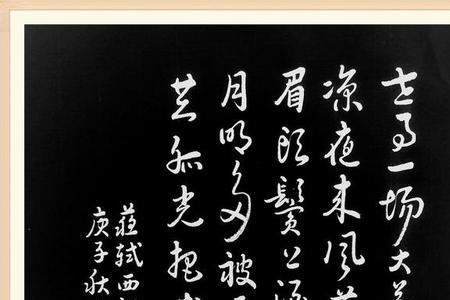 世事一场大
凉夜来风
眉头鬓上酒
月明多被
共孤光把
苏轼西
庚子秋